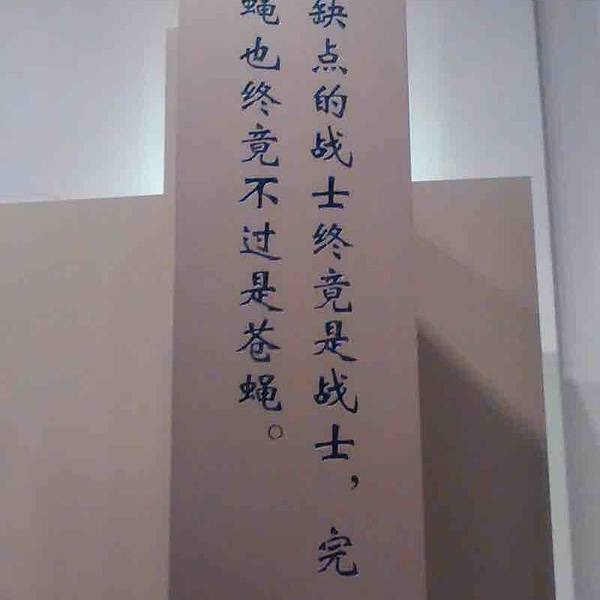 缺点的战士终竟是战士，完
蝇也终竟不过是苍蝇。